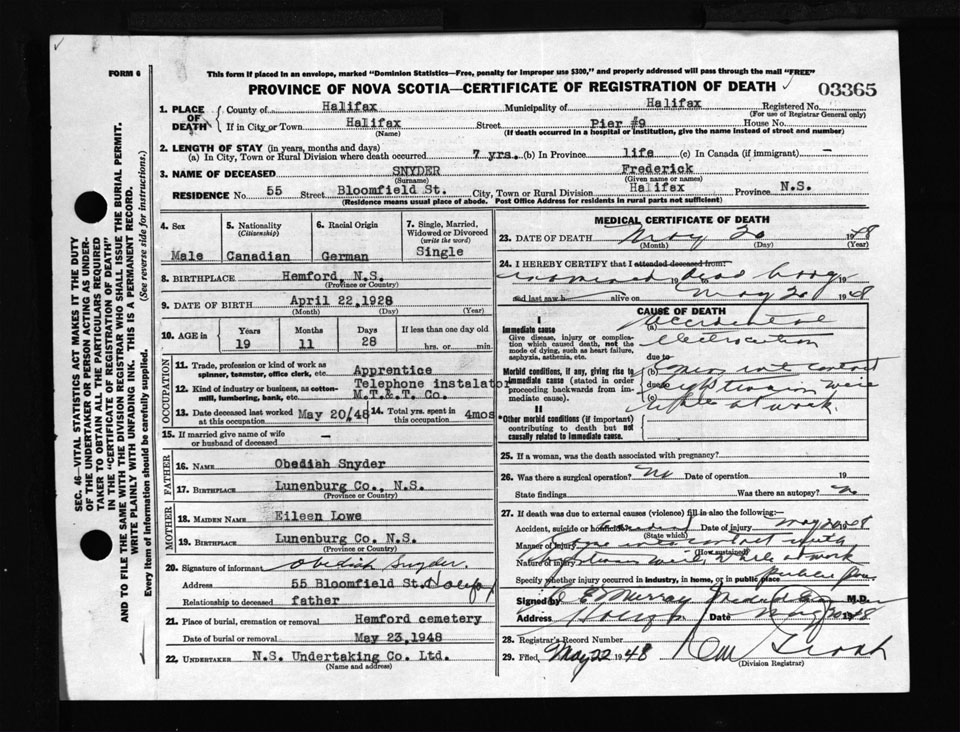 FORM 6
This form if placed in an envelope, marked "Dominion Statistics—Free, penalty for improper use $300," and properly addressed will pass through the mail "FREE"
PROVINCE OF NOVA SCOTIA—CERTIFICATE OF REGISTRATION OF DEATH
03365
1. PLACE OF DEATH
County of Halifax Municipality of Halifax Registered No.
(For use of Registrar General only)
If in City or Town Halifax Street Pier #9 House No.
(Name) (If death occurred in a hospital or institution, give the name instead of street and number)
2. LENGTH OF STAY (in years, months and days)
(a) In City, Town or Rural Division where death occurred 7 yrs. (b) In Province life (c) In Canada (if immigrant) —
3. NAME OF DECEASED SNYDER Frederick
(Surname) (Given name or names)
RESIDENCE No. 55 Street Bloomfield St. City, Town or Rural Division Halifax Province N.S.
(Residence means usual place of abode. Post Office Address for residents in rural parts not sufficient)
SEC. 46—VITAL STATISTICS ACT MAKES IT THE DUTY
OF THE UNDERTAKER OR PERSON ACTING AS UNDER-
TAKER TO OBTAIN ALL THE PARTICULARS REQUIRED
IN THE "CERTIFICATE OF REGISTRATION OF DEATH"
AND TO FILE THE SAME WITH THE DIVISION REGISTRAR WHO SHALL ISSUE THE BURIAL PERMIT.
WRITE PLAINLY WITH UNFADING INK. THIS IS A PERMANENT RECORD.
Every item of information should be carefully supplied. (See reverse side for instructions.)
4. Sex
Male
5. Nationality
(Citizenship)
Canadian
6. Racial Origin
German
7. Single, Married, Widowed or Divorced
(write the word)
Single
8. BIRTHPLACE Hemford, N.S.
(Province or Country)
9. DATE OF BIRTH April 22, 1928
(Month) (Day) (Year)
10. AGE in Years Months Days If less than one day old
19 11 28 hrs. or min
OCCUPATION
11. Trade, profession or kind of work as spinner, teamster, office clerk, etc. Apprentice
12. Kind of industry or business, as cotton-mill, lumbering, bank, etc. Telephone instalator
M.T.&T. Co.
13. Date deceased last worked at this occupation May 20/48 14. Total yrs. spent in this occupation 4mos
15. If married give name of wife or husband of deceased —
FATHER
16. NAME Obediah Snyder
17. BIRTHPLACE Lunenburg Co., N.S.
(Province or Country)
MOTHER
18. MAIDEN NAME Eileen Lowe
19. BIRTHPLACE Lunenburg Co. N.S.
(Province or Country)
20. Signature of informant Obediah Snyder.
Address 55 Bloomfield St. Halifax
Relationship to deceased father
21. Place of burial, cremation or removal Hemford cemetery
Date of burial or removal May 23, 1948
22. UNDERTAKER N.S. Undertaking Co. Ltd.
(Name and address)
MEDICAL CERTIFICATE OF DEATH
23. DATE OF DEATH May 20 1948
(Month) (Day) (Year)
24. I HEREBY CERTIFY that I attended deceased from:
examined 19 dead body 19
and last saw h alive on May 20 1948
CAUSE OF DEATH
I
Immediate cause
Give disease, injury or complication which caused death, not the mode of dying, such as heart failure, asphyxia, asthenia, etc.
(a) Accidental
electrocution
due to
Morbid conditions, if any, giving rise to immediate cause (stated in order proceeding backwards from immediate cause).
(b) contact
due to wire
(c) while at work.
II
*Other morbid conditions (if important) contributing to death but not causally related to immediate cause.
25. If a woman, was the death associated with pregnancy?
26. Was there a surgical operation? No Date of operation 19
State findings Was there an autopsy? No
27. If death was due to external causes (violence) fill in also the following:
Accident, suicide or homicide? Date of injury May 20 1948
(State which)
Manner of injury into contact with
(How sustained)
Nature of injury wire, while at work
Specify whether injury occurred in industry, in home, or in public place public place
Signed by E Murray M.D.
Address Halifax Date May 20 1948
28. Registrar's Record Number
29. Filed, May 22 1948
(Division Registrar)